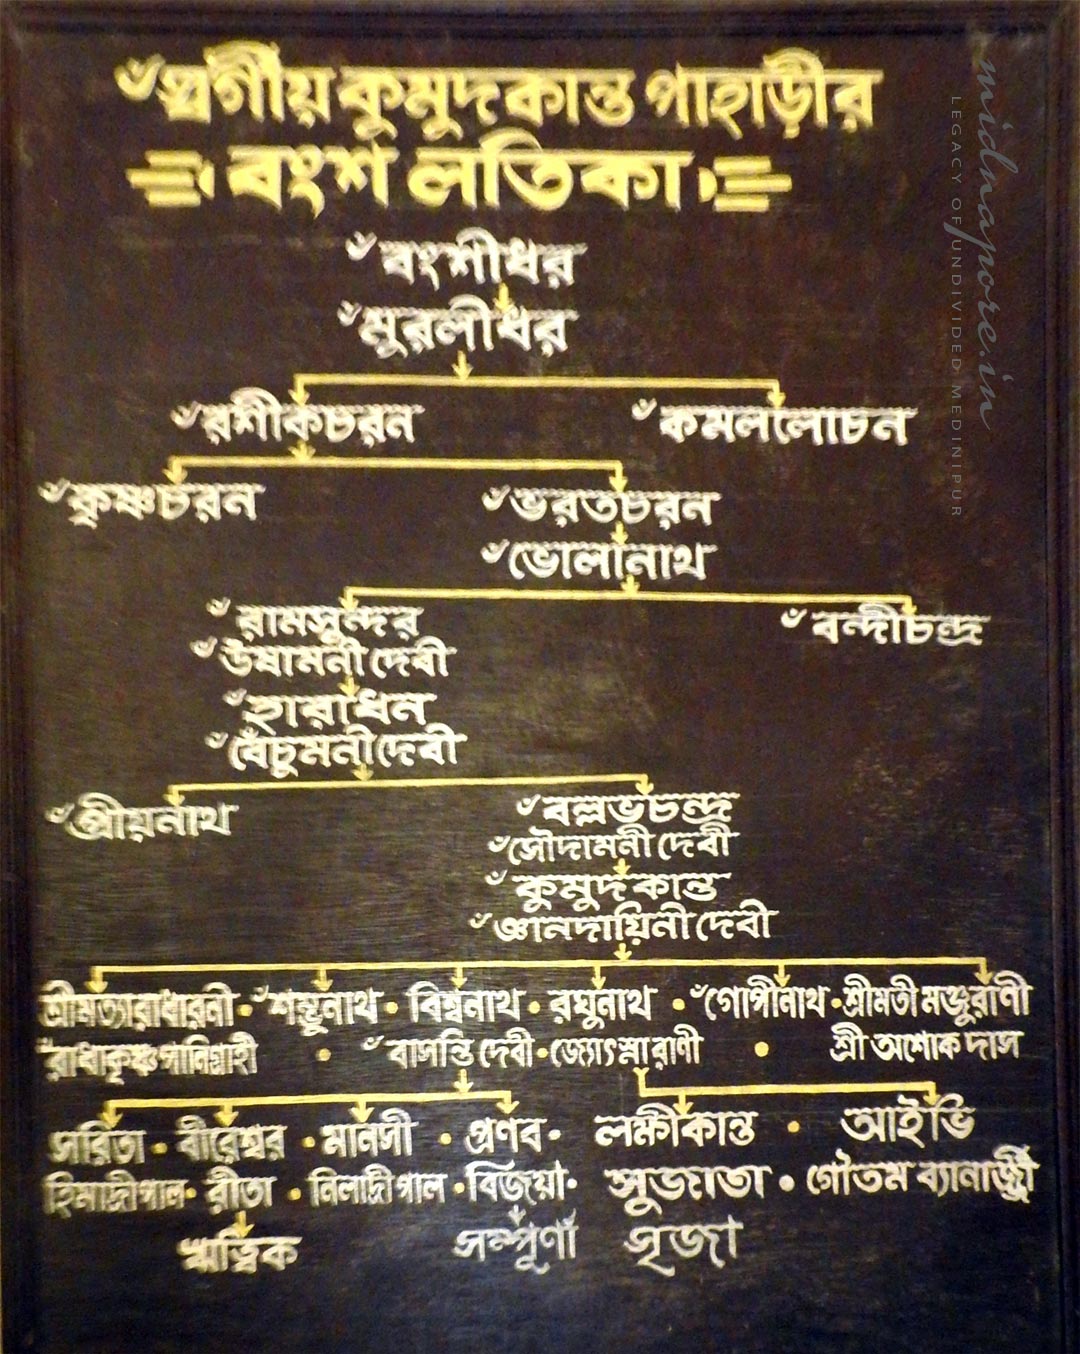 ঁস্বর্গীয় কুমুদকান্ত পাহাড়ীর
বংশ লতিকা
ঁবংশীধর
ঁমুরলীধর
ঁরশীকচরন ঁকমললোচন
ঁকৃষ্ণচরন ঁভরতচরন
ঁভোলানাথ
ঁরামসুন্দর ঁবন্দীচন্দ্র
ঁউষামনী দেবী
ঁহারাধন
ঁবেঁচুমনী দেবী
ঁপ্রীয়নাথ ঁবল্লভচন্দ্র
ঁসৌদামনী দেবী
ঁকুমুদকান্ত
ঁজ্ঞানদায়িনী দেবী
শ্রীমত্যারাধারনী • ঁশম্ভুনাথ • বিশ্বনাথ • রঘুনাথ • ঁগোপীনাথ • শ্রীমতী মঞ্জুরাণী
ঁরাধাকৃষ্ণ পানিগ্রাহী • ঁবাসন্তি দেবী • জ্যোৎস্না রাণী • শ্রী অশোক দাস
সরিতা • বীরেশ্বর • মানসী • প্রণব • লক্ষীকান্ত • আইভি
হিমাদ্রী পাল • রীতা • নিলাদ্রী পাল • বিজয়া • সুজাতা • গৌতম ব্যানার্জ্জী
ঋত্বিক সম্পূর্ণা সৃজা
midnapore.in
LEGACY OF UNDIVIDED MEDINIPUR